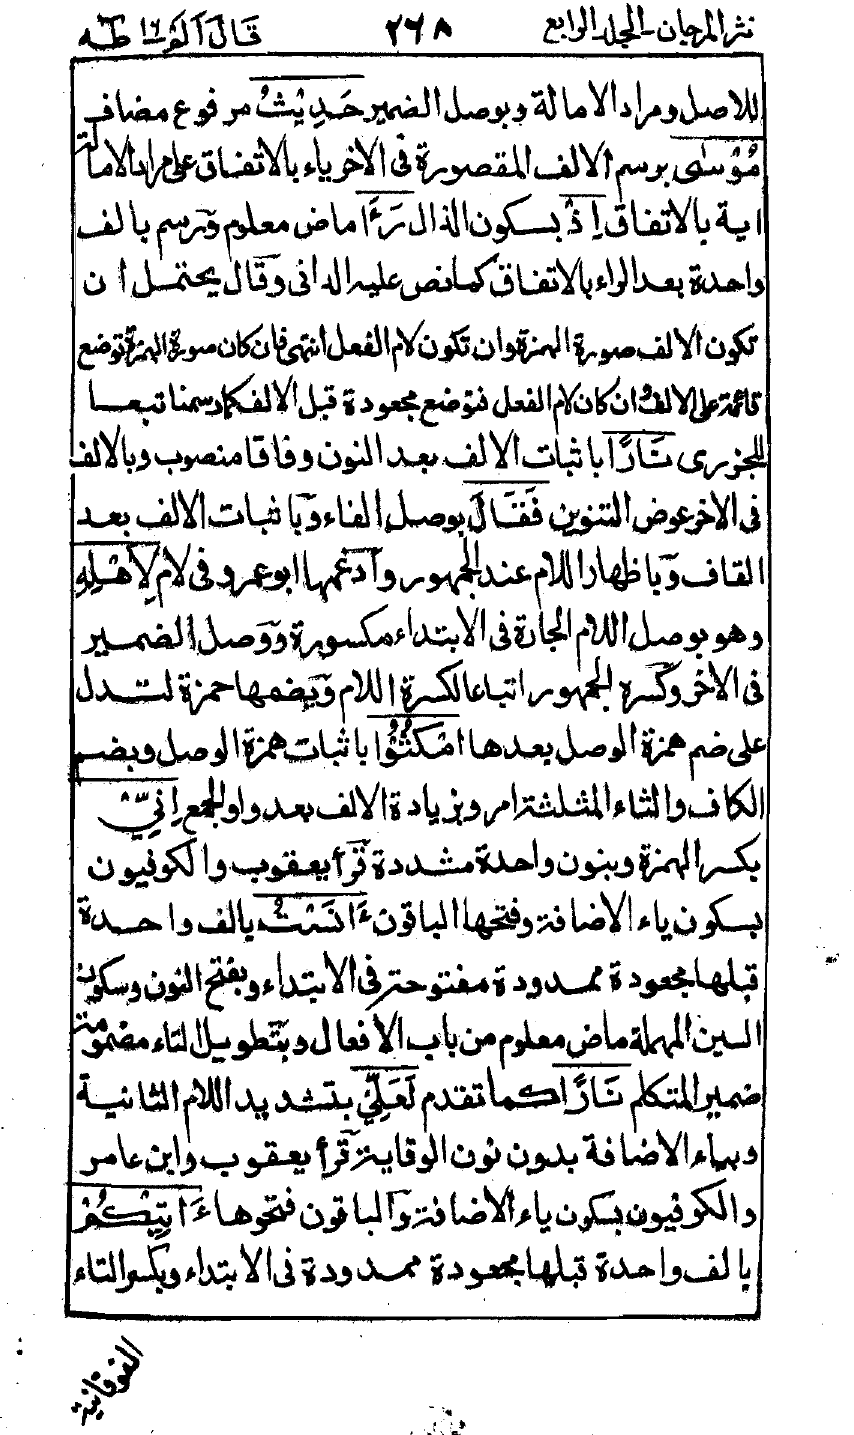 نثر المرجان - المجلد الرابع ٢٦٨ قال الم ١٦ طه
للاصل ومراد الامالة وبوصل الضمير حَدِيْثُ مرفوع مضاف
مُوْسٰى برسم الالف المقصورة فى الاخرياء بالاتفاق على مراد الامالة
اية بالاتفاق اِذْ بسكون الذال رَءَا ماض معلوم ورسم بالف
واحدة بعد الراء بالاتفاق كما نص عليه الدانى وقال يحتمل ان
تكون الالف صورة الهمزة وان تكون لام الفعل انتهى فان كان صورة الهمزة توضع
قائمة على الالف وان كان لام الفعل فتوضع مجعودة قبل الالف كما رسمنا تبعا
للجزرى نَارًا باثبات الالف بعد النون وفاقا منصوب وبالالف
فى الاخر عوض التنوين فَقَالَ بوصل الفاء وباثبات الالف بعد
القاف وباظهار اللام عند الجمهور وادغمها ابو عمرو فى لام لِاَهْلِهِ
وهو بوصل اللام الجارة فى الابتداء مكسورة ووصل الضمير
فى الاخر وكسره الجمهور اتباعا لكسرة اللام ويضمها حمزة لتدل
على ضم همزة الوصل بعدها امْكُثُوْا باثبات همزة الوصل وبضم
الكاف والثاء المثلثة امر وبزيادة الالف بعد واو الجمع اِنِّيْ
بكسر الهمزة وبنون واحدة مشددة قرأ يعقوب والكوفيون
بسكون ياء الاضافة وفتحها الباقون ءَانَسْتُ بالف واحدة
قبلها مجعودة ممدودة مفتوحة فى الابتداء وبفتح النون وسكون
السين المهملة ماض معلوم من باب الافعال وبتطويل التاء مضمومة
ضمير المتكلم نَارًا كما تقدم لَعَلِّيْ بتشديد اللام الثانية
وبياء الاضافة بدون نون الوقاية قرأ يعقوب وابن عامر
والكوفيون بسكون ياء الاضافة والباقون فتحوها ءَاتِيْكُمْ
بالف واحدة قبلها مجعودة ممدودة فى الابتداء وبكسر التاء
الفوقانية